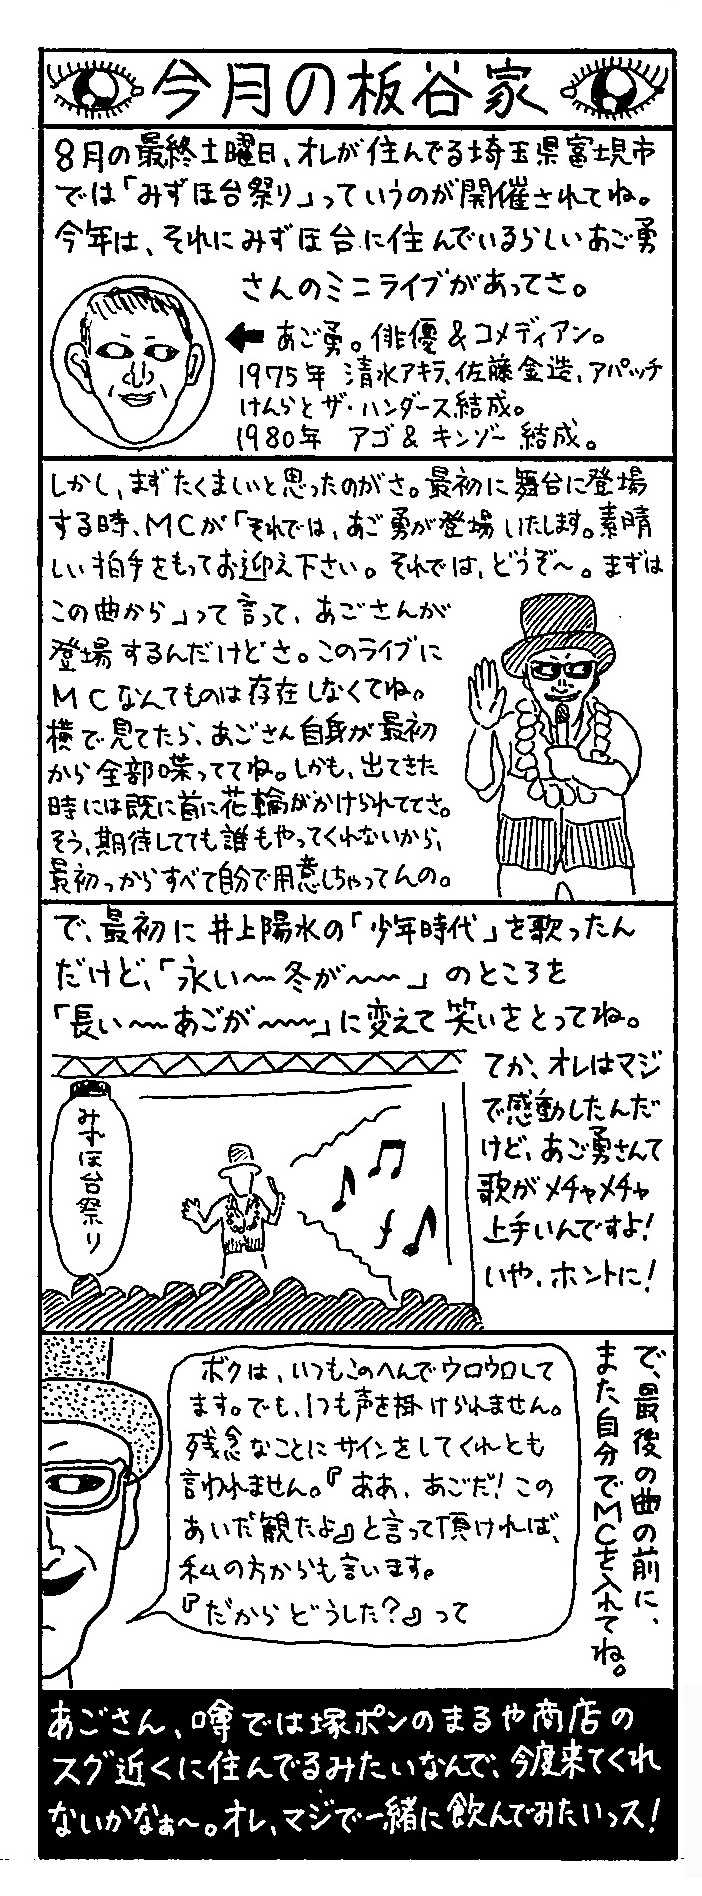 今月の板谷家
8月の最終土曜日、オレが住んでる埼玉県富士見市
では「みずほ台祭り」っていうのが開催されてね。
今年は、それにみずほ台に住んでいるらしいあご勇
さんのミニライブがあってさ。
あご勇。俳優&コメディアン。
1975年 清水アキラ、佐藤金造、アパッチ
けんらとザ・ハンダース結成。
1980年 アゴ&キンゾー結成。
しかし、まずたくましいと思ったのがさ。最初に舞台に登場
する時、MCが「それでは、あご勇が登場いたします。素晴
しい拍手をもってお迎え下さい。それでは、どうぞ〜。まずは
この曲から」って言って、あごさんが
登場するんだけどさ。このライブに
MCなんてものは存在しなくてね。
横で見てたら、あごさん自身が最初
から全部喋っててね。しかも、出てきた
時には既に首に花輪がかけられててさ。
そう、期待してても誰もやってくれないから、
最初っからすべて自分で用意しちゃってんの。
で、最初に井上陽水の「少年時代」を歌ったん
だけど、「永い〜冬が〜〜」のところを
「長い〜あごが〜〜」に変えて笑いをとってね。
てか、オレはマジ
で感動したんだ
けど、あご勇さんて
歌がメチャメチャ
上手いんですよ!
いや、ホントに!
みずほ台祭り
で、最後の曲の前に、
また自分でMCを入れてね。
ボクは、いつもこのへんでウロウロして
ます。でも、1つも声を掛けられません。
残念なことにサインをしてくれとも
言われません。『ああ、あごだ!この
あいだ観たよ』と言って頂ければ、
私の方からも言います。
『だからどうした?』って
あごさん、噂では塚ポンのまるや商店の
スグ近くに住んでるみたいなんで、今度来てくれ
ないかなぁ〜。オレ、マジで一緒に飲んでみたいっス!